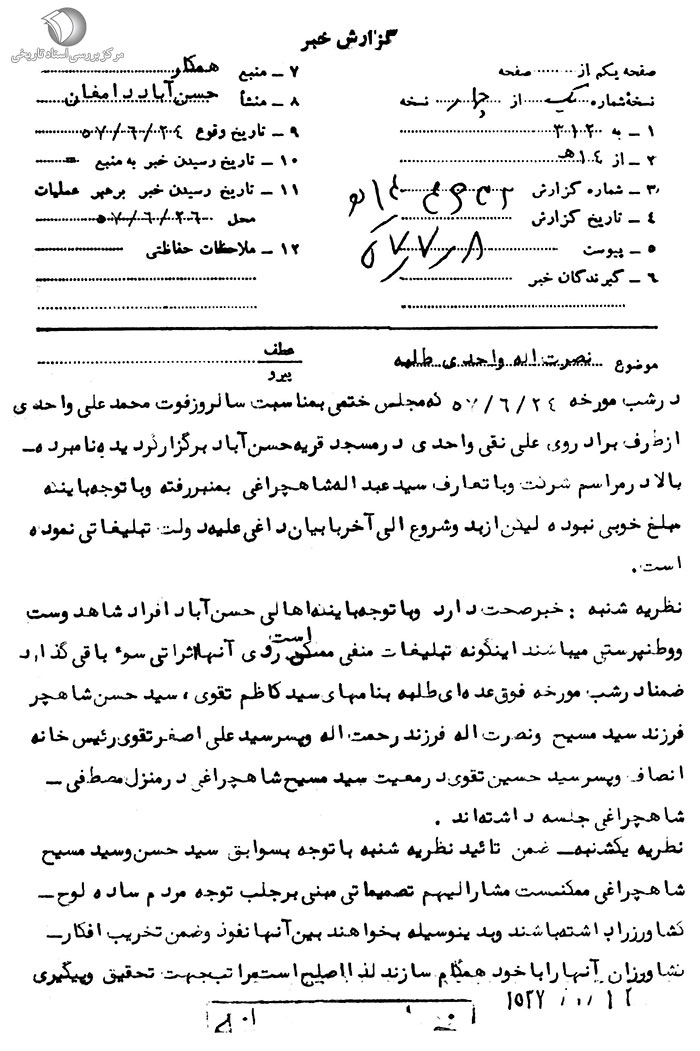 مرکز بررسی اسناد تاریخی
گزارش خبر
صفحه یکم از صفحه
نسخهٔ شماره یک از چهار نسخه
۱ ـ به ۳۱۲
۲ ـ از ۱۴هـ
۳ ـ شماره گزارش
۴ ـ تاریخ گزارش
۵ ـ پیوست
۶ ـ گیرندگان خبر
۷ ـ منبع همکار
۸ ـ منشأ حسن‌آباد دامغان
۹ ـ تاریخ وقوع ۵۷/۶/۲۴
۱۰ ـ تاریخ رسیدن خبر به منبع =
۱۱ ـ تاریخ رسیدن خبر برهبر عملیات
محل ۵۷/۶/۲۶
۱۲ ـ ملاحظات حفاظتی
موضوع نصرت اله واحدی طلبه
عطف
پیرو
در شب مورخه ۵۷/۶/۲۴ که مجلس ختمی بمناسبت سالروز فوت محمد علی واحدی
از طرف برادر وی علی نقی واحدی در مسجد قریه حسن‌آباد برگزار گردیده نامبرده ـ
بالا در مراسم شرکت و با تعارف سید عبداله شاهچراغی بمنبر رفته و با توجه باینکه
مبلغ خوبی نبوده لیکن از بدو شروع الی آخر با بیان داغی علیه دولت تبلیغاتی نموده
است.
نظریه شنبه : خبر صحت دارد و با توجه باینکه اهالی حسن‌آباد افراد شاهدوست
و وطنپرستی میباشند اینگونه تبلیغات منفی ممکن است روی آنها اثراتی سوء باقی گذارد
ضمنا در شب مورخه فوق عده‌ای طلبه بنامهای سید کاظم تقوی ، سید حسن شاهچر
فرزند سید مسیح و نصرت اله فرزند رحمت اله و پسر سید علی اصغر تقوی رئیس خانه
انصاف و پسر سید حسین تقوی در معیت سید مسیح شاهچراغی در منزل مصطفی ـ
شاهچراغی جلسه داشته‌اند .
نظریه یکشنبه ـ ضمن تائید نظریه شنبه با توجه بسوابق سید حسن و سید مسیح
شاهچراغی ممکنست مشارالیهم تصمیماتی مبنی بر جلب توجه مردم ساده لوح ـ
کشاورز را داشته باشند و بدینوسیله بخواهند بین آنها نفوذ و ضمن تخریب افکار ـ
کشاورزان آنها را با خود همگام سازند لذا اصلح است مراتب جهت تحقیق و پیگیری